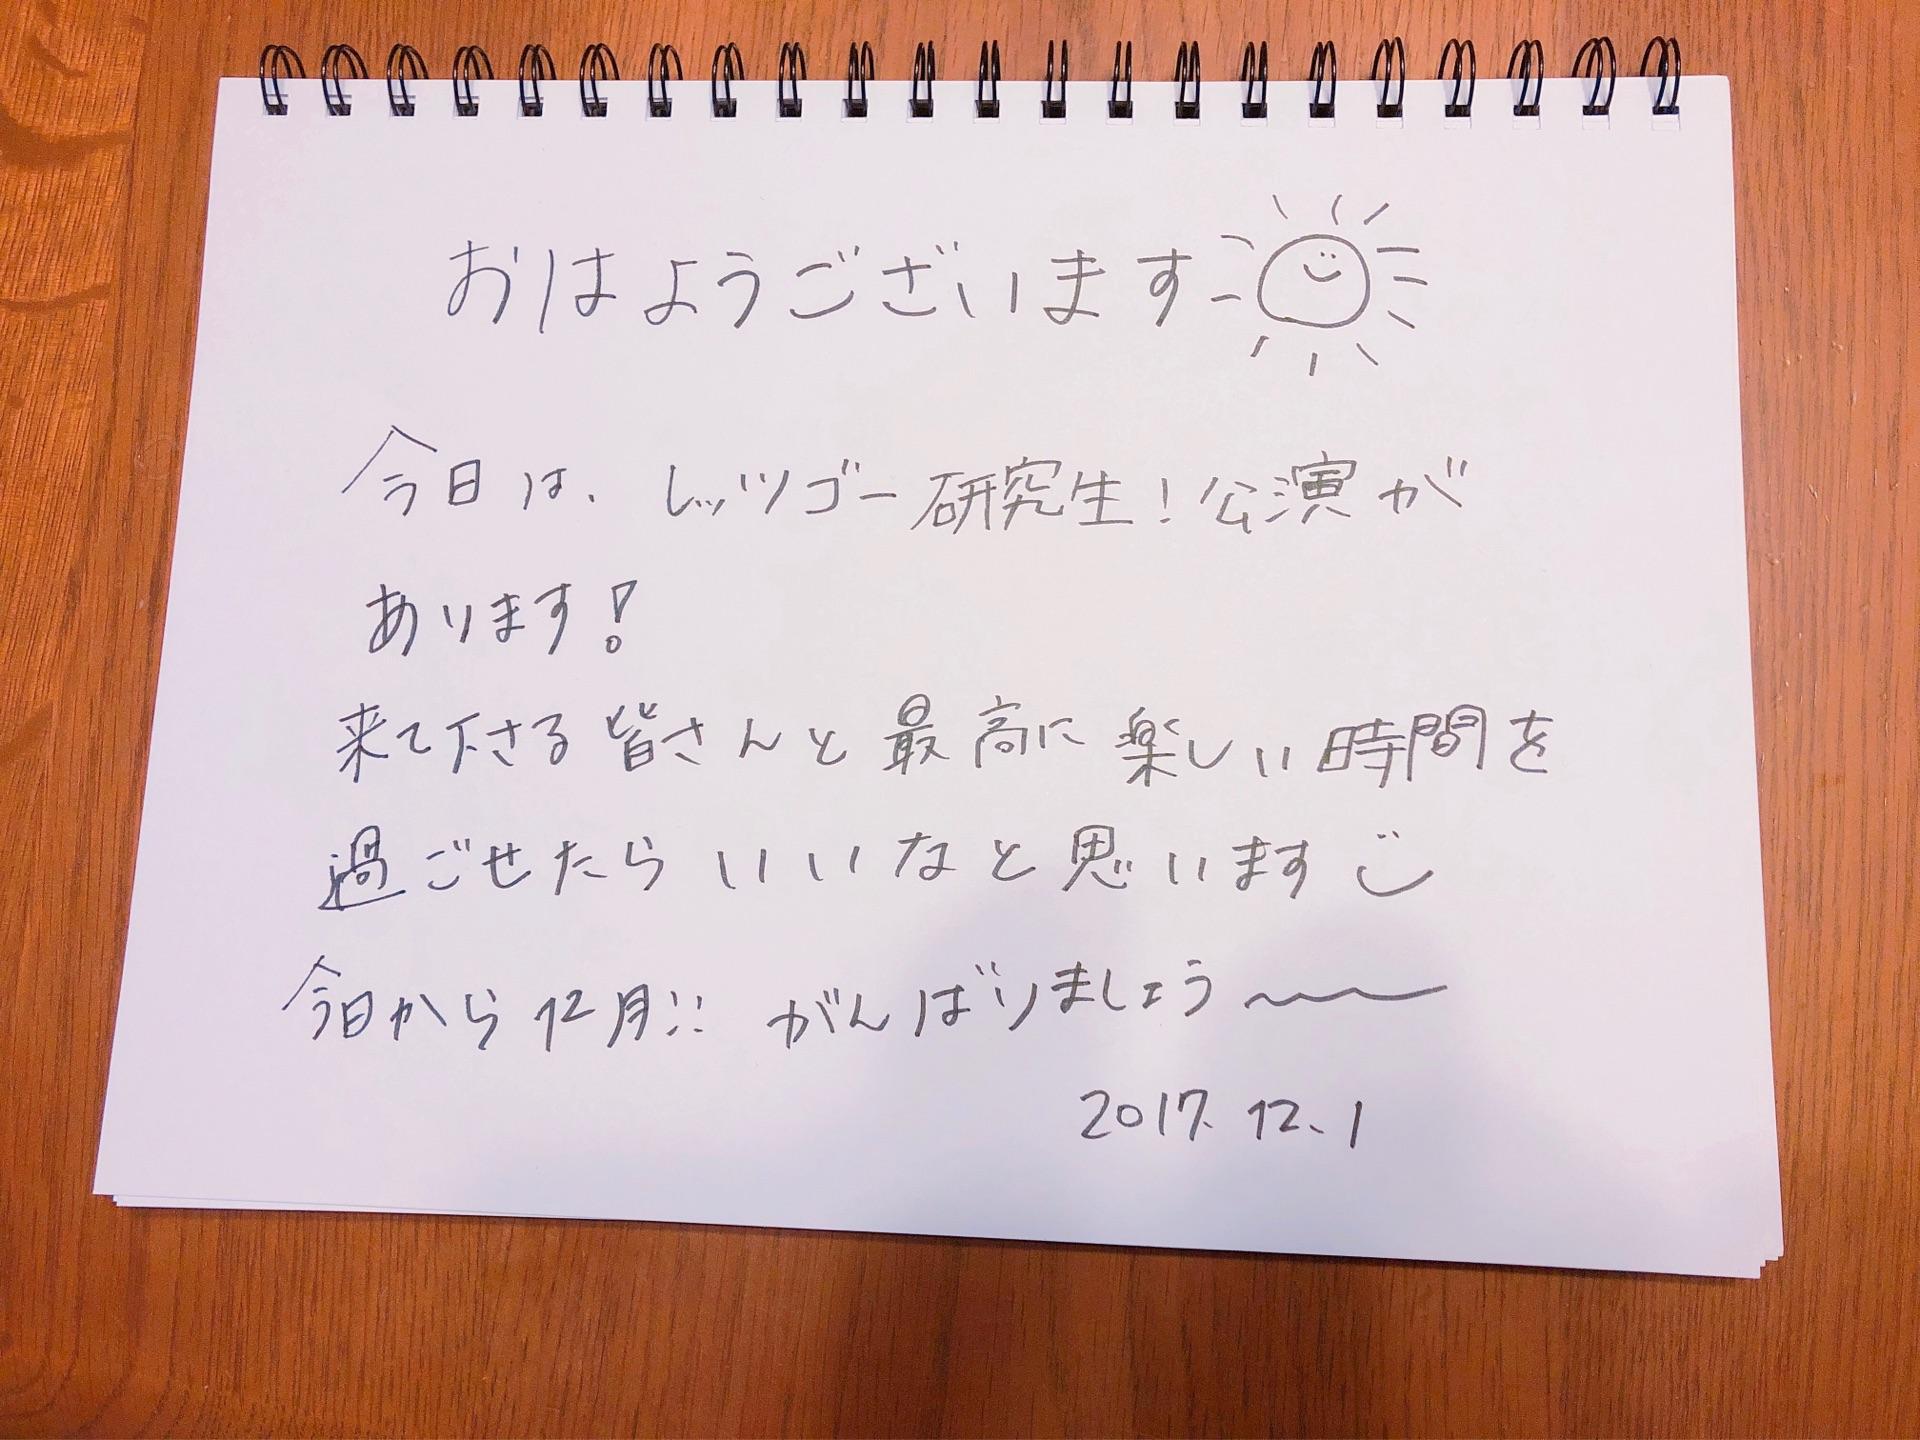 おはようございます
今日は、レッツゴー研究生！公演が
あります！
来て下さる皆さんと最高に楽しい時間を
過ごせたらいいなと思います
今日から12月!! がんばりましょう〜〜
2017.12.1